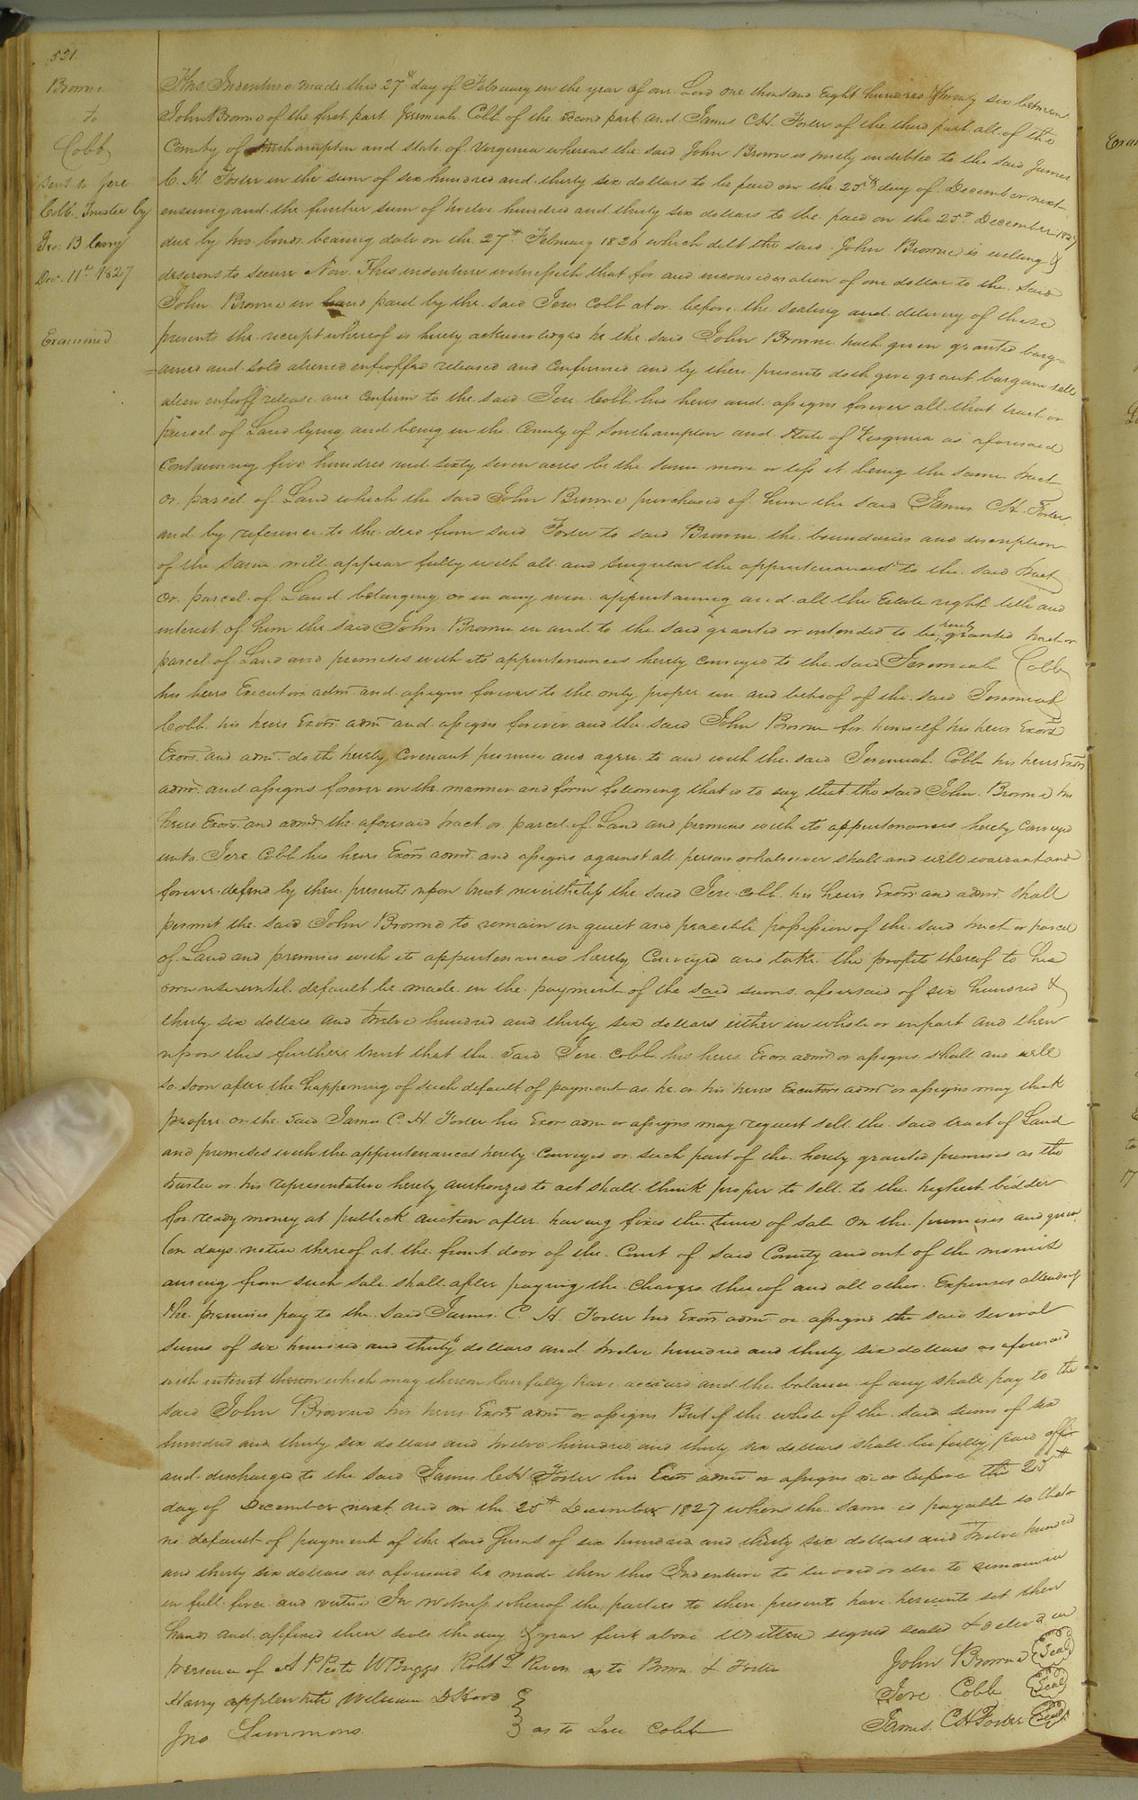 521.
Browne
to
Cobb
Sent to Jere
Cobb Trustee by
Dec. 11th 1827
Examined
This Indenture made this 27th day of February in the year of our Lord one thousand Eight hundred & twenty six between
John Browne of the first part Jeremiah Cobb of the second part and James C H. Foster of the third part all of the
County of Southampton and State of Virginia whereas the said John Browne is justly indebted to the said James
C. H. Foster in the sum of six hundred and thirty six dollars to be paid on the 25th day of December next
ensuing and the further sum of twelve hundred and thirty six dollars to be paid on the 25th December 1827
due by his bonds bearing date on the 27th February 1826 which debt the said John Browne is willing &
desirous to secure Now This indenture witnesseth that for and in consideration of one dollar to the said
John Browne in hand paid by the said Jere Cobb at or before the sealing and delivery of these
presents the receipt whereof is hereby acknowledged he the said John Browne hath given granted barg-
=ained and sold aliened enfeoffed released and confirmed and by these presents doth give grant bargain sell
alien enfeoff release and confirm to the said Jere Cobb his heirs and assigns forever all that tract or
parcel of Land lying and being in the County of Southampton and State of Virginia as aforesaid
containing five hundred and sixty seven acres be the same more or less it being the same tract
or parcel of Land which the said John Browne purchased of him the said James C H. Foster,
and by reference to the deed from said Foster to said Browne the boundaries and description
of the same will appear fully with all and singular the appurtenances to the said tract
or parcel of Land belonging or in any wise appertaining and all the Estate right title and
interest of him the said John Browne in and to the said granted or intended to be hereby granted tract or
parcel of Land and premises with its appurtenances hereby conveyed to the said Jeremiah Cobb
his heirs Executors admrs and assigns forever to the only proper use and behoof of the said Jeremiah
Cobb his heirs Exors admrs and assigns forever and the said John Browne for himself his heirs Exors
Exors and admrs doth hereby Covenant promise and agree to and with the said Jeremiah Cobb his heirs Exors
admrs and assigns forever in the manner and form following that is to say that the said John Browne his
heirs Exors and admrs the aforesaid tract or parcel of Land and premises with its appurtenances hereby conveyed
unto Jere Cobb his heirs Exors admrs and assigns against all persons whatsoever shall and will warrant and
forever defend by these presents upon trust nevertheless the said Jere Cobb his heirs Exors and admrs shall
permit the said John Browne to remain in quiet and peaceable possession of the said tract or parcel
of Land and premises with its appurtenances hereby Conveyed and take the profits thereof to his
own use until default be made in the payment of the said sums aforesaid of six hundred &
thirty six dollars and twelve hundred and thirty six dollars either in whole or in part and then
upon this further trust that the said Jere Cobb his heirs Exors admrs or assigns shall and will
so soon after the happening of such default of payment as he or his heirs Executors admrs or assigns may think
proper or the said James C. H Foster his Exors admrs or assigns may request sell the said tract of Land
and premises with the appurtenances hereby conveyed or such part of the hereby granted premises as the
trustee or his representative hereby authorized to act shall think proper to sell to the highest bidder
for ready money at publick auction after having fixed the time of sale on the premises and given
ten days notice thereof at the front door of the Court of said County and out of the monies
arising from such sale shall after paying the charges thereof and all other Expenses attending
the premises pay to the said James C. H. Foster his Exors admrs or assigns the said several
sums of six hundred and thirty 6 dollars and twelve hundred and thirty six dollars as aforesaid
with interest thereon which may thereon lawfully have accrued and the balance if any shall pay to the
said John Browne his heirs Exors admrs or assigns But if the whole of the said sums of six
hundred and thirty six dollars and twelve hundred and thirty six dollars shall be fully paid off
and discharged to the said James C H Foster his Exors admrs or assigns on or before the 25th
day of December next and on the 25th December 1827 when the same is payable so that
no default of payment of the said sums of six hundred and thirty six dollars and Twelve hundred
and thirty six dollars as aforesaid be made then this Indenture to be void or else to remain in
in full force and virtue In witness whereof the parties to these presents have hereunto set their
hands and affixed their seals the day & year first above Written signed sealed & deliverd in
presence of A P Peete W Briggs Robt as to Brown & Foster John Browne {Seal}
Harry Applewhite William Jere Cobb {Seal}
Jno Simmons } as to Jere Cobb James. C H Foster {Seal}